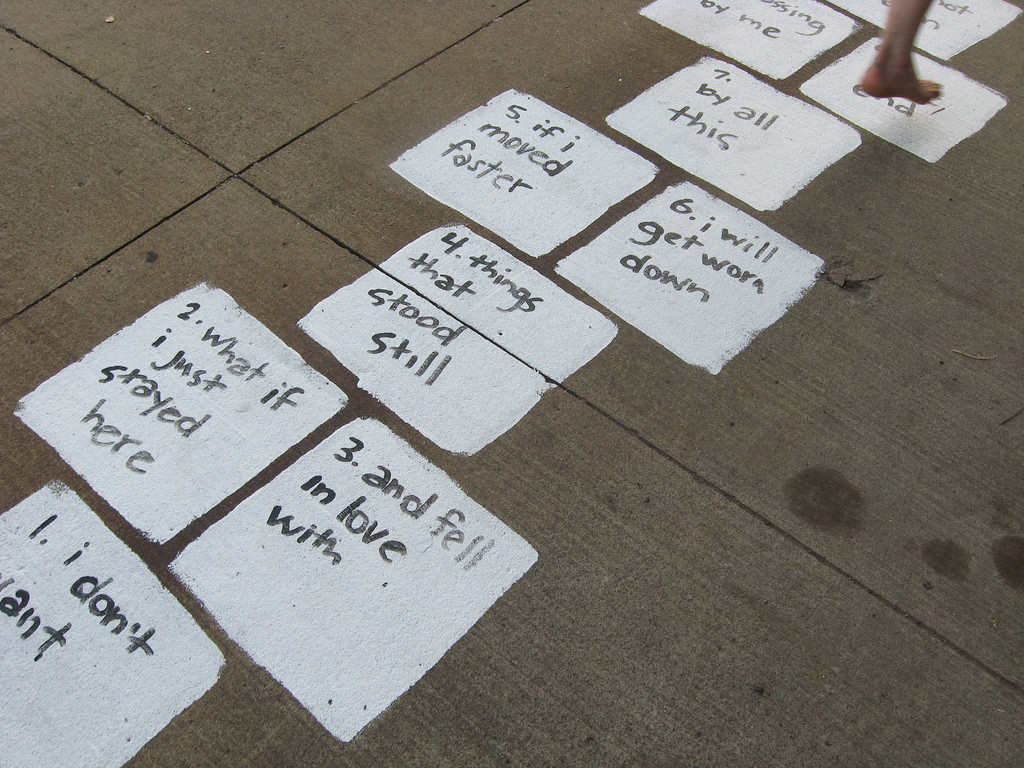 1. i don't
2. what if
i just
stayed
here
3. and fell
in love
with
4. things
that
stood
still
5. if i
moved
faster
6. i will
get worn
down
7.
by all
this
by me
end